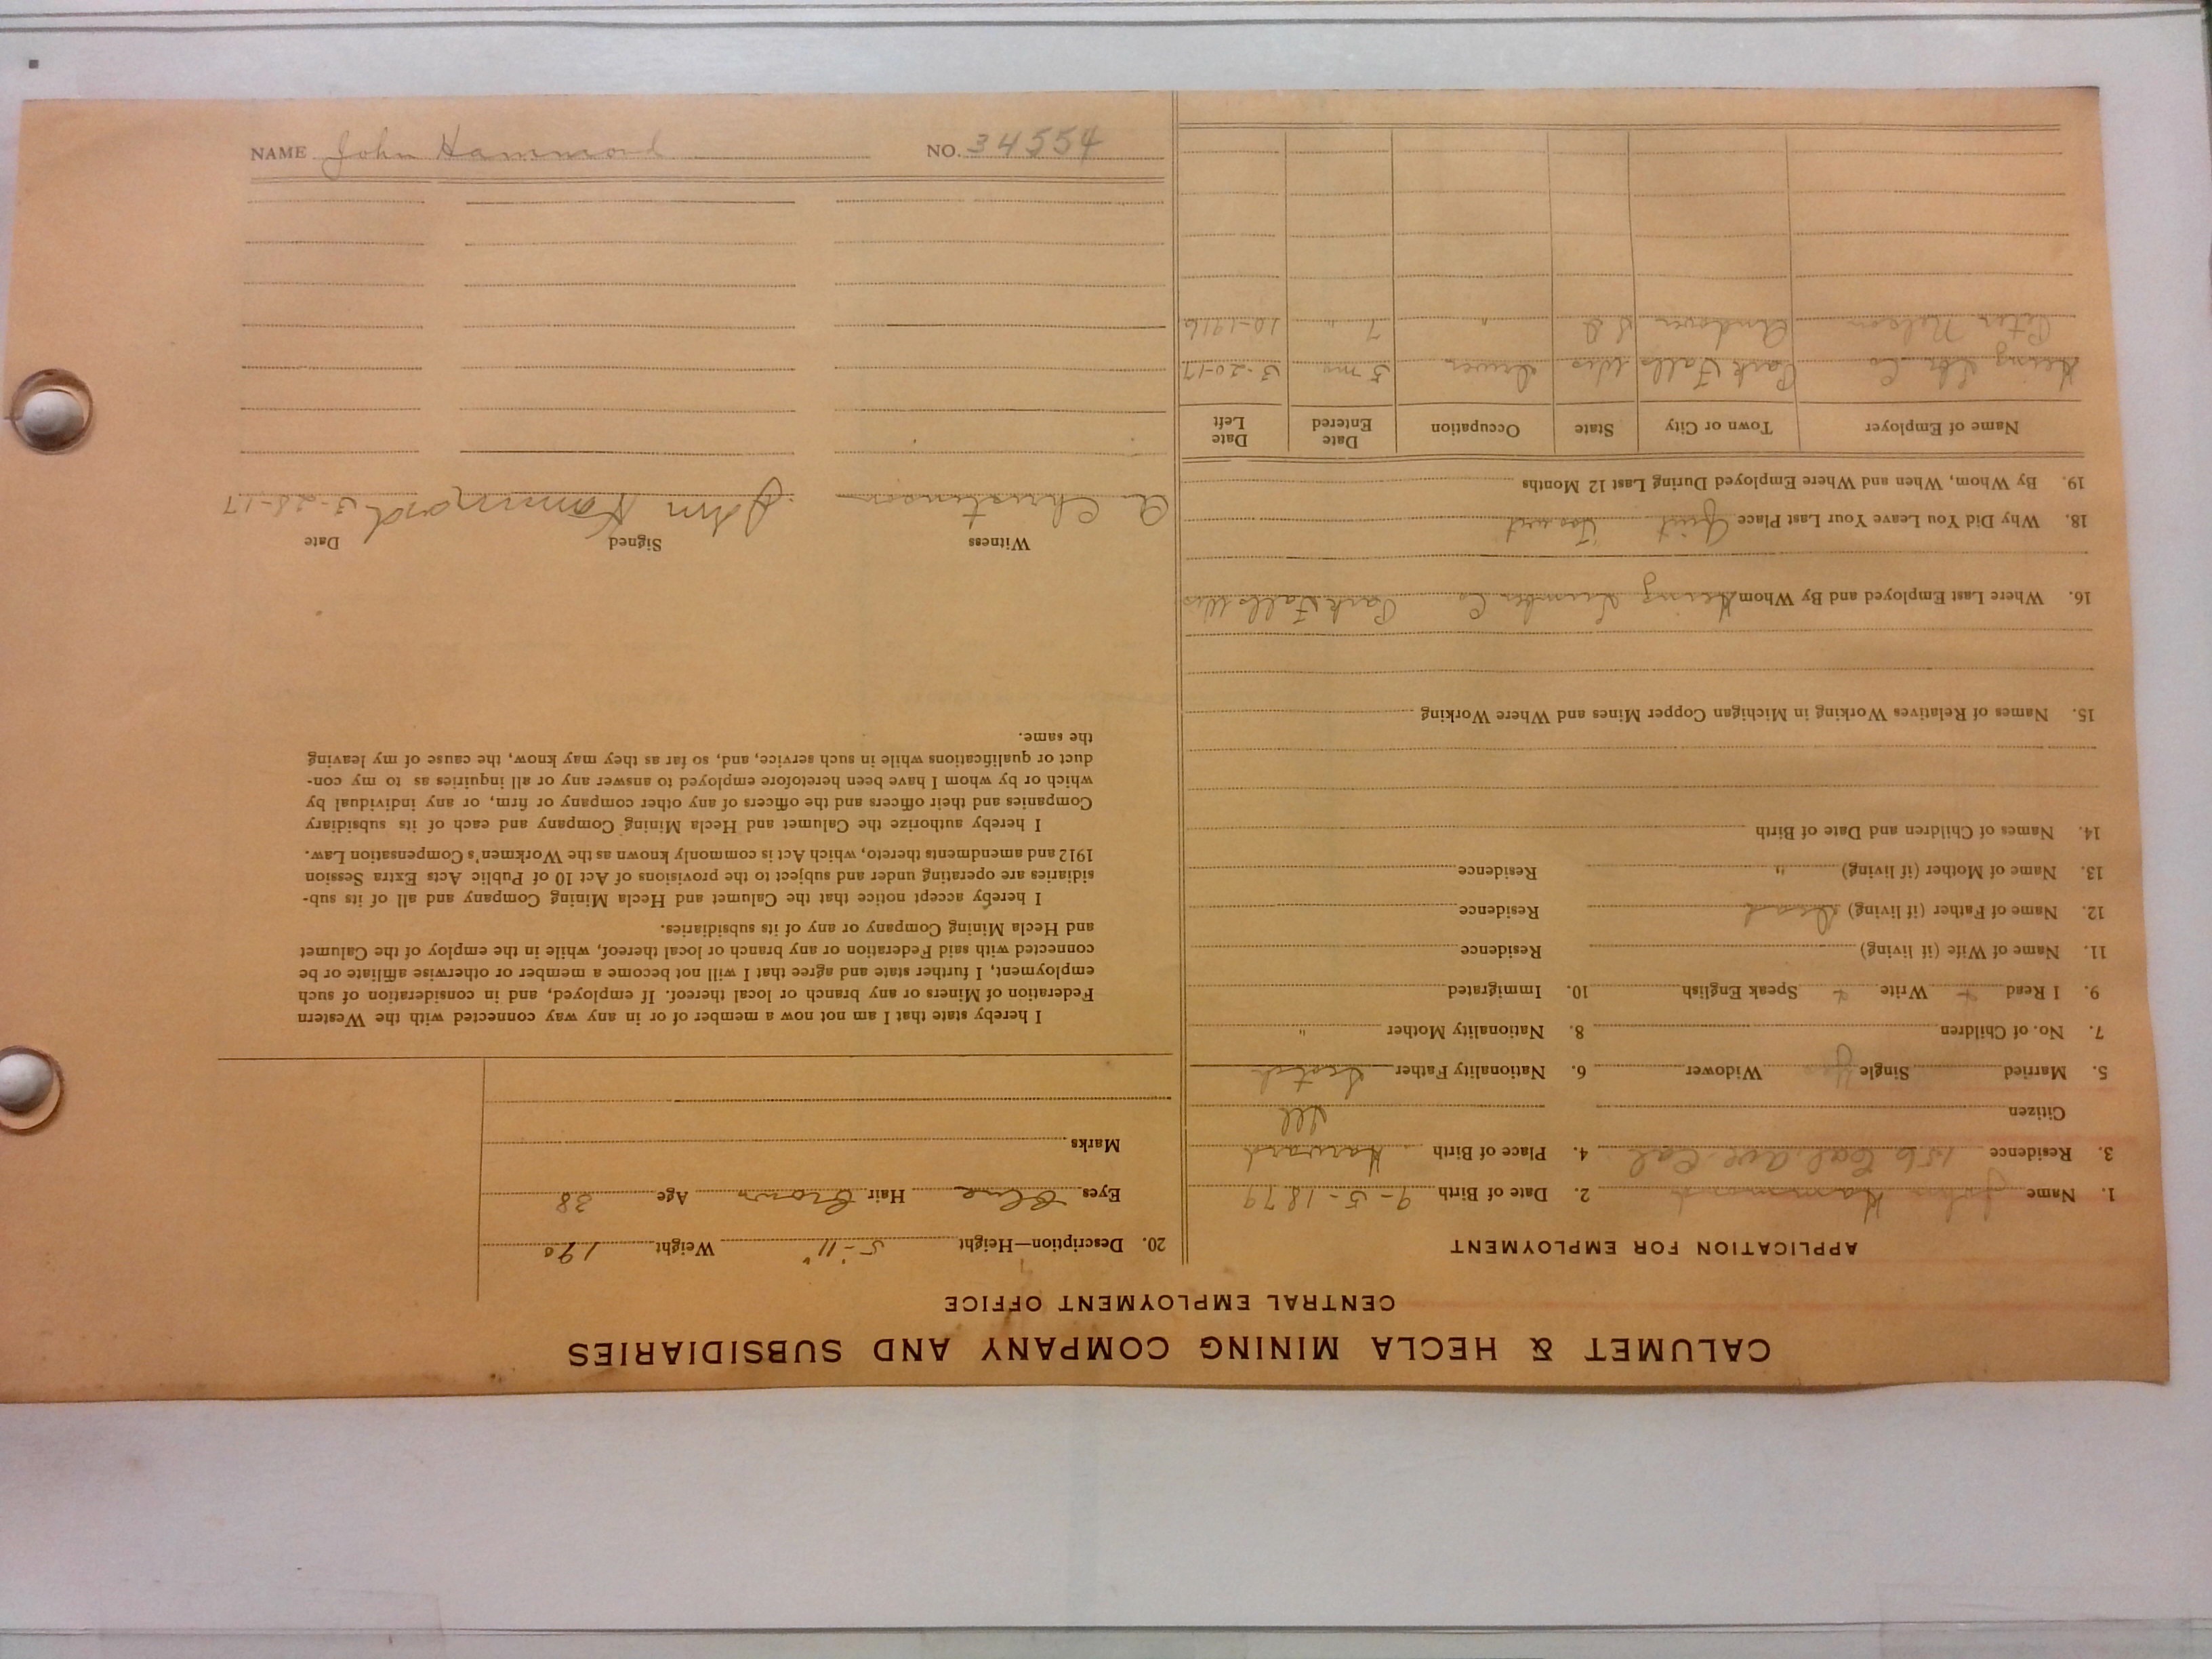 CALUMET & HECLA MINING COMPANY AND SUBSIDIARIES
CENTRAL EMPLOYMENT OFFICE
APPLICATION FOR EMPLOYMENT
1. Name John Hammond 2. Date of Birth 9-5-1879
3. Residence 156 Cal. Ave. Cal 4. Place of Birth Harvard
Citizen Ill
5. Married Single Yes Widower 6. Nationality Father Scotch
7. No. of Children 8. Nationality Mother "
9. I Read + Write + Speak English 10. Immigrated
11. Name of Wife (if living) Residence
12. Name of Father (if living) Dead Residence
13. Name of Mother (if living) " Residence
14. Names of Children and Date of Birth
15. Names of Relatives Working in Michigan Copper Mines and Where Working
16. Where Last Employed and By Whom Lumber Co Park Falls Wis
18. Why Did You Leave Your Last Place Quit
19. By Whom, When and Where Employed During Last 12 Months
Name of Employer Town or City State Occupation Date Entered Date Left
Lbr. Co Park Falls Wis 5 mo 3-20-17
Peter Nelson Andover S D " 7 " 10-1916
20. Description—Height 5'-11" Weight 190
Eyes Blue Hair Brown Age 38
Marks
I hereby state that I am not now a member of or in any way connected with the Western
Federation of Miners or any branch or local thereof. If employed, and in consideration of such
employment, I further state and agree that I will not become a member or otherwise affiliate or be
connected with said Federation or any branch or local thereof, while in the employ of the Calumet
and Hecla Mining Company or any of its subsidiaries.
I hereby accept notice that the Calumet and Hecla Mining Company and all of its sub-
sidiaries are operating under and subject to the provisions of Act 10 of Public Acts Extra Session
1912 and amendments thereto, which Act is commonly known as the Workmen's Compensation Law.
I hereby authorize the Calumet and Hecla Mining Company and each of its subsidiary
Companies and their officers and the officers of any other company or firm, or any individual by
which or by whom I have been heretofore employed to answer any or all inquiries as to my con-
duct or qualifications while in such service, and, so far as they may know, the cause of my leaving
the same.
Witness Signed Date
A Christenson John Hammond 3-28-17
NAME John Hammond NO. 34554